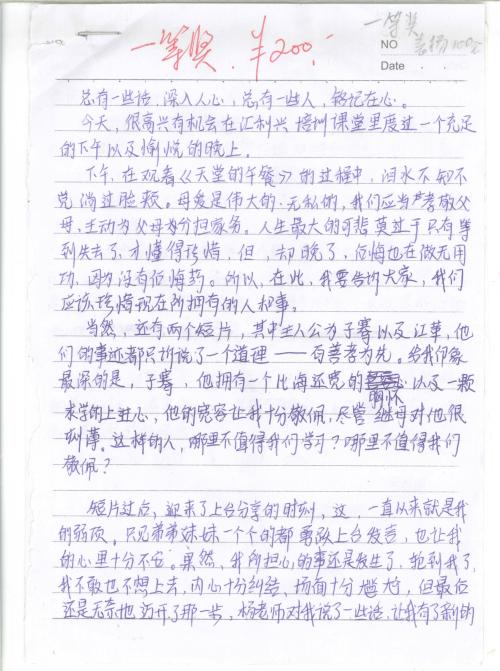 一等奖
一等奖. ￥200.-
NO 奖励100元
Date
总有一些话，深入人心，总有一些人，铭记在心。
今天，很高兴有机会在汇利兴培训课堂里度过一个充足
的下午以及愉悦的晚上。
下午，在观看《天堂的午餐》的过程中，泪水不知不
觉淌过脸颊。母爱是伟大的、无私的，我们应当孝敬父
母，主动为父母分担家务。人生最大的可悲莫过于只有等
到失去了，才懂得珍惜，但，却晚了，后悔也在做无用
功，因为没有后悔药。所以，在此，我要告诉大家，我们
应该珍惜现在所拥有的人和事。
当然，还有两个短片，其中主人公为子骞以及江革，他
们的事迹都只诉说了一个道理——百善孝为先。给我印象
最深的是，子骞，他拥有一个比海还宽的胸怀以及一颗
求学的上进心，他的宽容让我十分敬佩，尽管继母对他很
刻薄。这样的人，哪里不值得我们学习？哪里不值得我们
敬佩？
短片过后，迎来了上台分享的时刻，这，一直以来就是我
的弱项。只见弟弟妹妹一个个的都勇敢上台发言，也让我
的心里十分不安。果然，我所担心的事还是发生了，轮到我了，
我不敢也不想上去，内心十分纠结，场面十分尴尬，但最后
还是无奈地迈开了那一步，杨老师对我说了一些话，让我有了新的